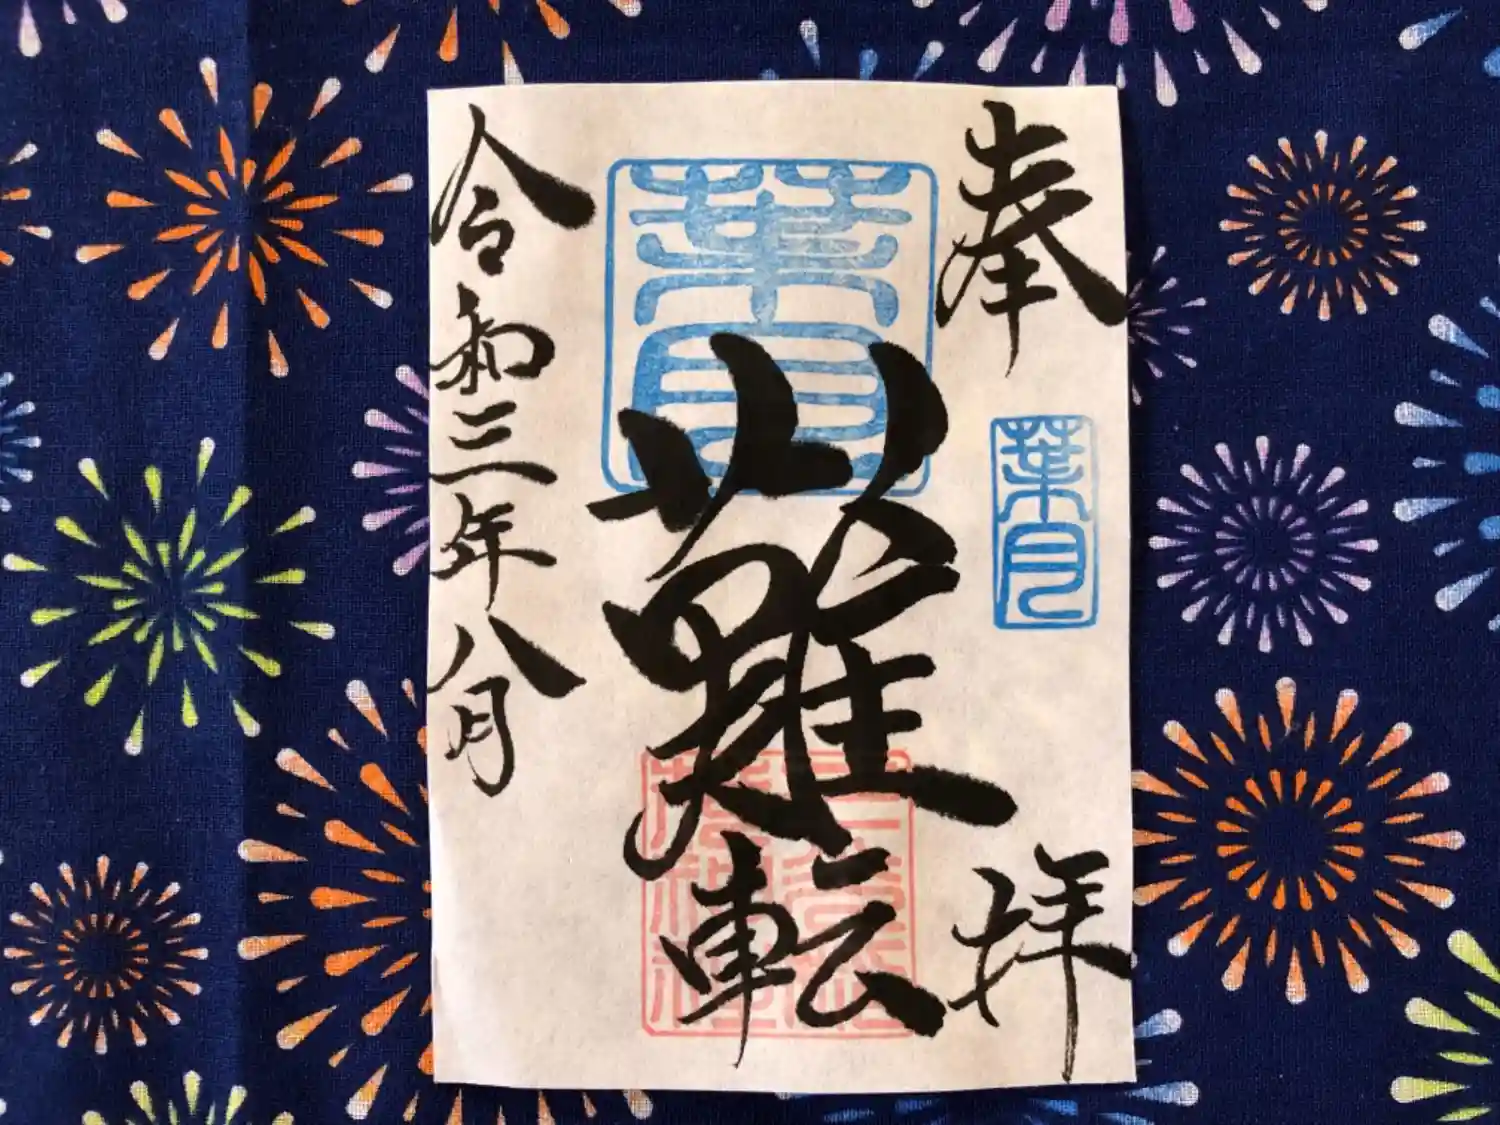 奉拝
葉月
葉月
難転
令和三年八月